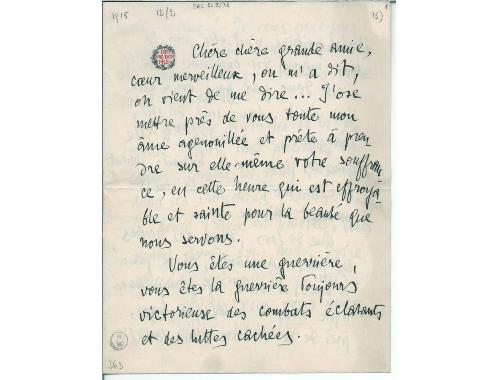 1915
12/2
15)
Chère chère grande amie,
cœur merveilleux, on m'a dit,
on vient de me dire... J'ose
mettre près de vous toute mon
âme agenouillée et prête à pren
dre sur elle-même votre souffran
ce, en cette heure qui est effroya
ble et sainte pour la beauté que
nous servons.
Vous êtes une guerrière,
vous êtes la guerrière toujours
victorieuse des combats éclatants
et des luttes cachées.
363